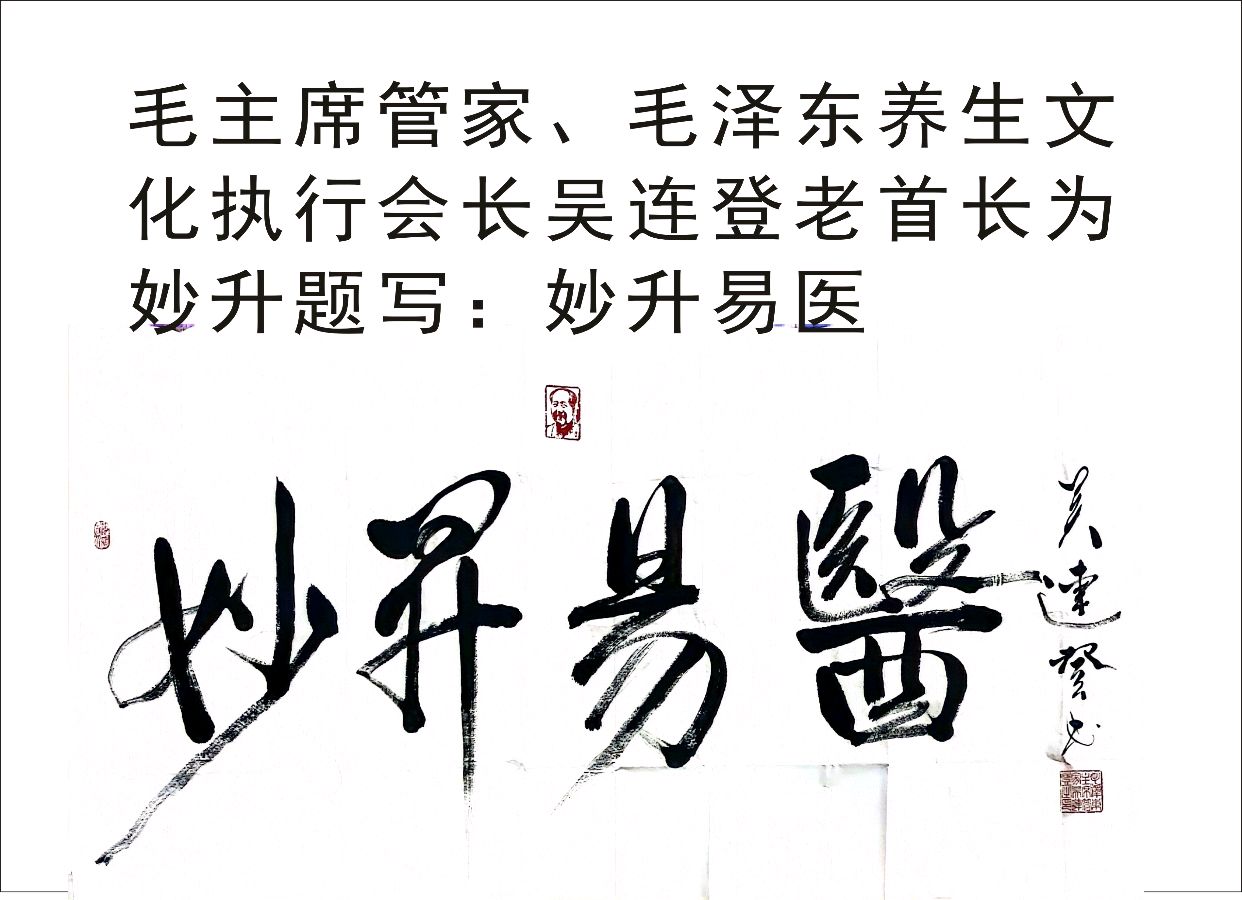 毛主席管家、毛泽东养生文
化执行会长吴连登老首长为
妙升题写：妙升易医
妙昇易醫
吴連登书